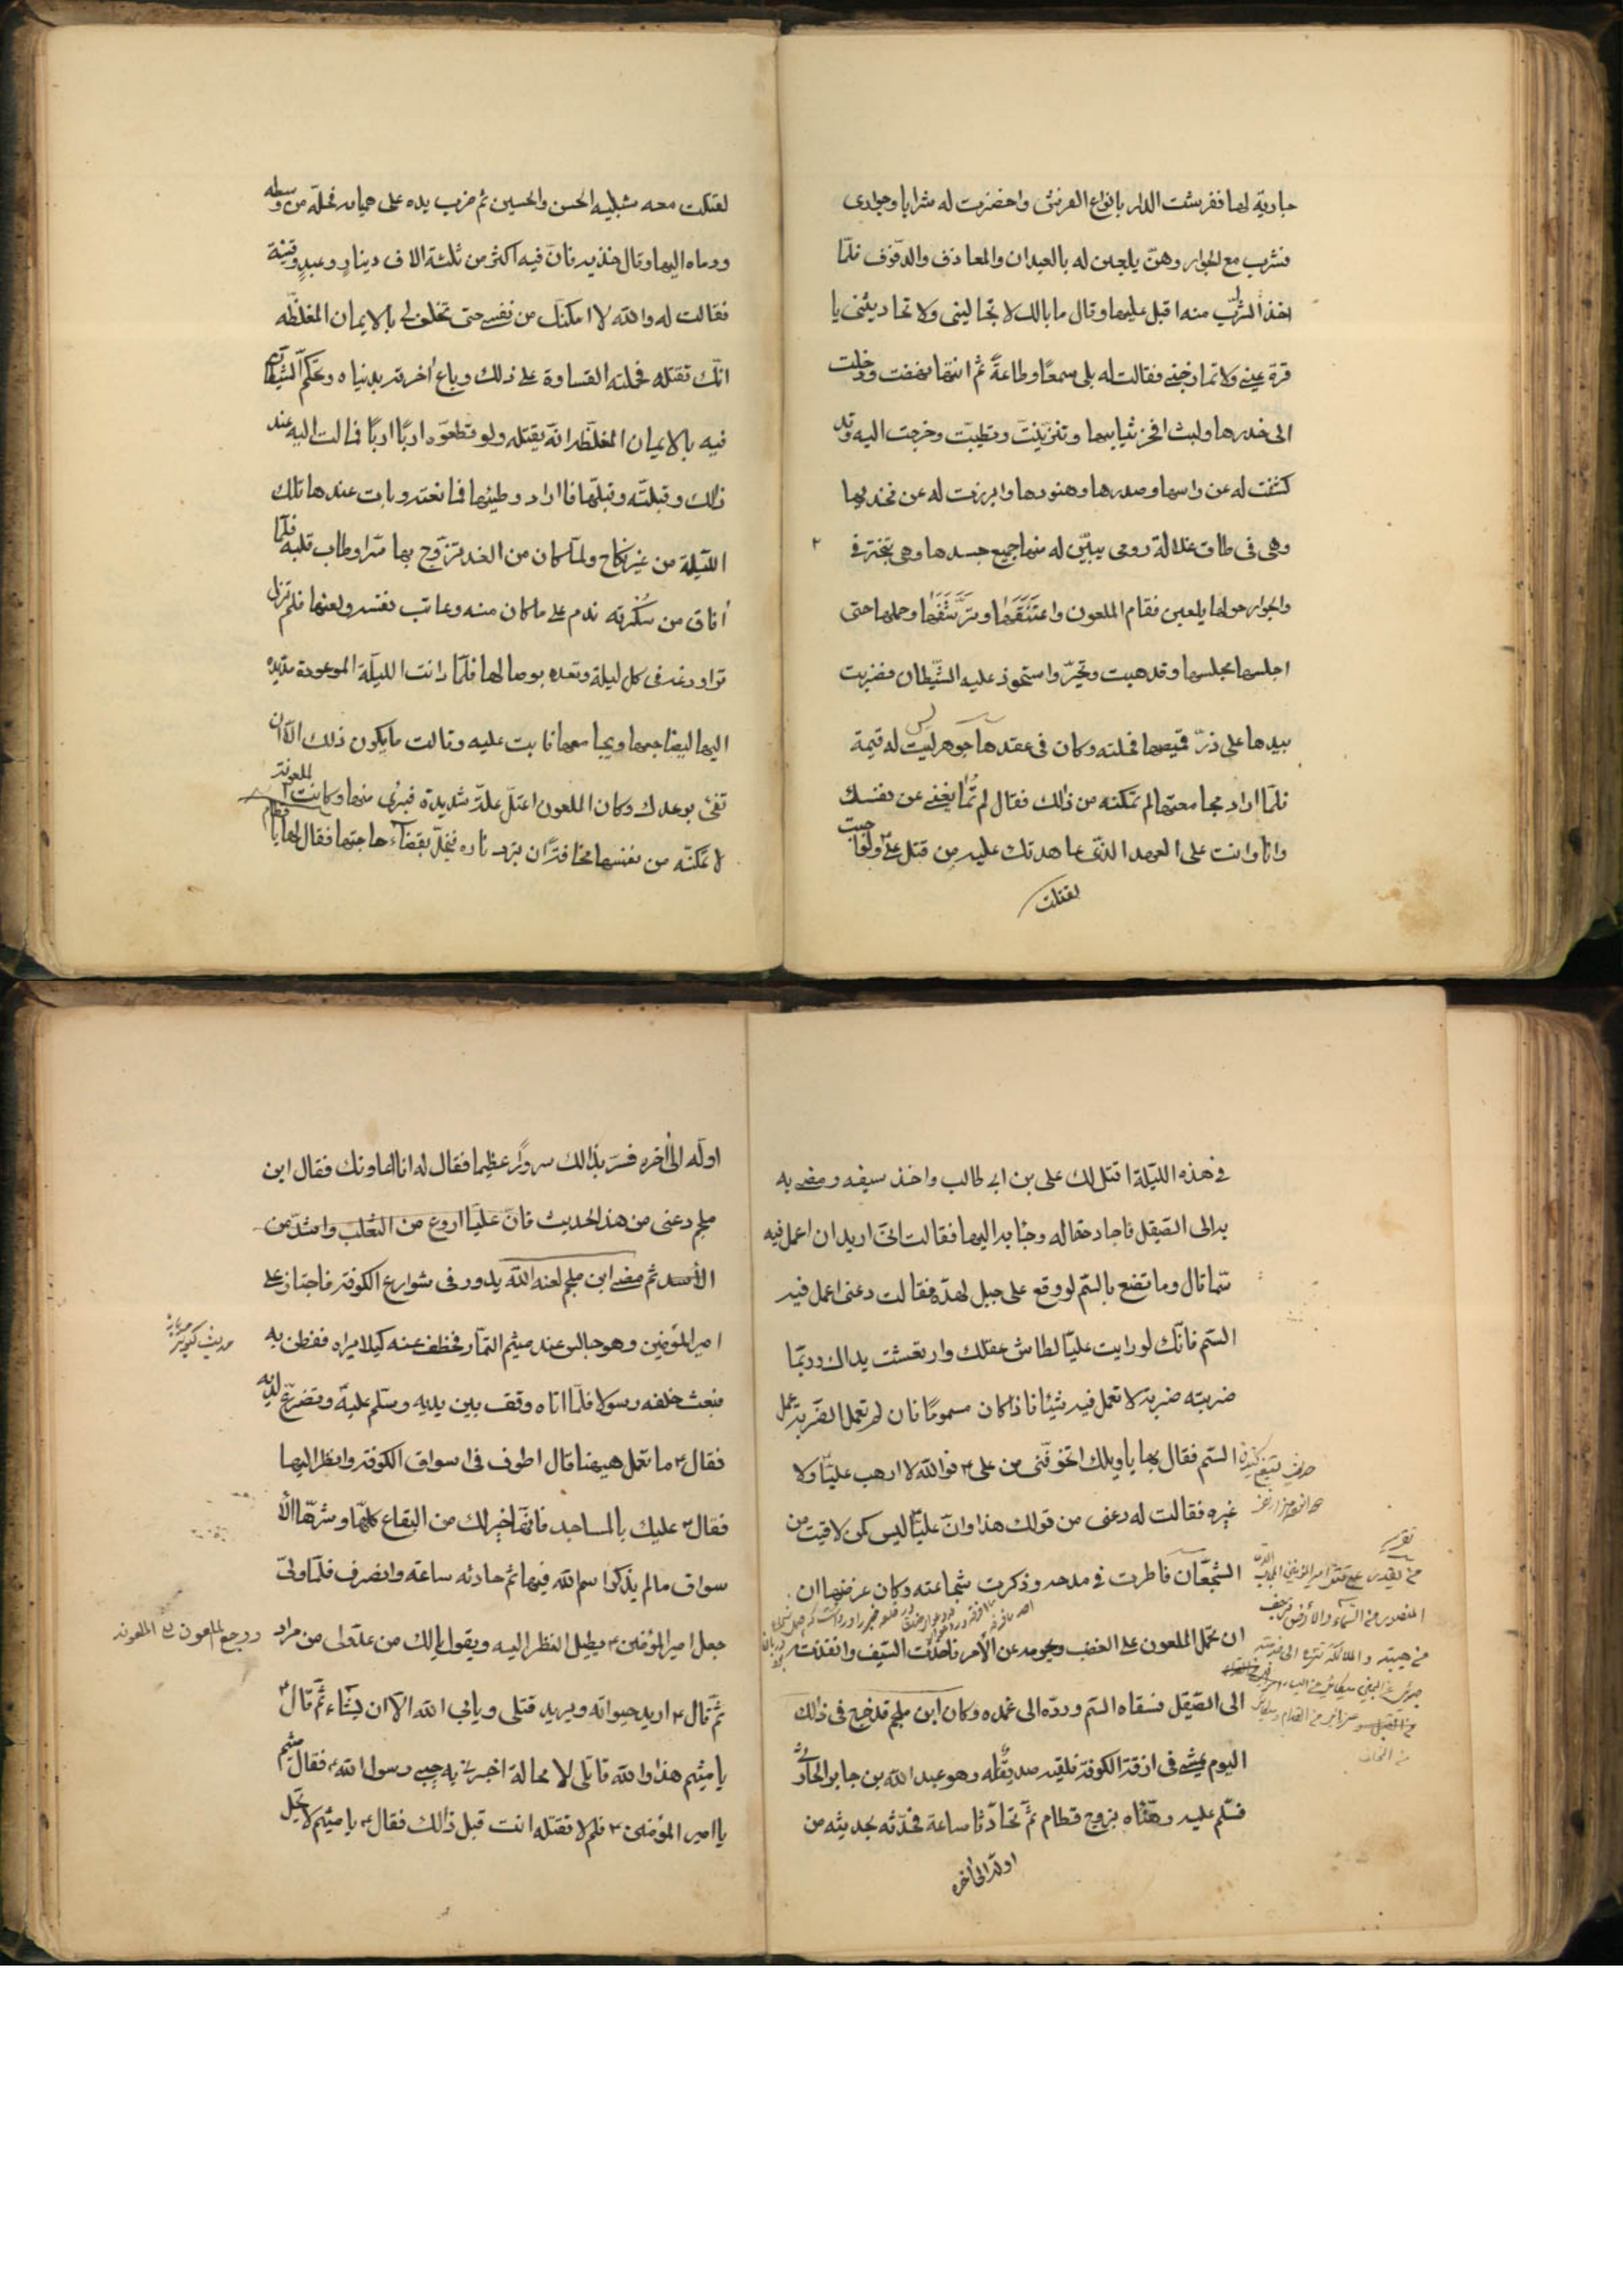 جارية لها ففرشت الدار بانواع الفرش واحضرت له شرابا وجوارى
فشرب مع الجوار وهنّ يلعبن له بالعيدان والمعازف والدّفوف فلمّا
اخذ الشرّب منه اقبل عليها وقال ما بالك لا تجاليسنى ولا تحاديثنى يا
قرة عينى ولا تمازحينى فقالت له بلى سمعًا وطاعةً ثمّ انّها نهضت ودخلت
الى خدرها ولبست افخر ثيابها وتزيّنت وتطيبّت وخرجت اليه وقد
كشفت له عن راسها وصدرها وهنودها وابرزت له عن فخديها
وهى فى طاق غلالة رومى يبيّن له منها جميع جسدها وهى تتبختر فى
والجوار حولها يلعبن فقام الملعون واعتَنَقَها وتَرَشَّفَها وحملها حتى
اجلسها مجلسها وقد هبت وتحيّر واستحوذ عليه الشّيطان فضربت
بيدها على زرّ قميصها فحلته وكان فى عقدها جوهر ليست له قيمة
ليس
فلمّا اراد مجامعتها لم تمكنه من ذالك فقال لم تُمانعينى عن نفسك
وانا وانت على العهد الذّى عاهدتك عليه من قتل علىّ ولو احببت
لقتلت
لقتلت معه شبليه الحسن والحسين ثم ضرب يده على هميانه فحلّه من وسطه
ورماه اليها وقال خذيه فانّ فيه اكثر من ثلثة الاف دينارٍ وعبدٍ وقينة
فقالت له والله لا امكنك من نفسى حتى تحلف لى بالايمان المغلظّه
انّك تقتله فحملته القساوة على ذلك وباع اخرته بدنياه وتحكّم الشّيطان
فيه بالايمان المغلّظه انّه يقتله ولو قطعوّه اربًا اربًا فمالت اليه عند
ذلك وقبلته وقبلّها فاراد وطيئها فمانعته وبات عندها تلك
اللّيلة من غير نكاح ولمّا كان من الغد تزوّج بها سّرا وطاب قلبه فلمّا
أفاق من سُكْرته ندم على ما كان منه وعاتب نفسه ولعنها فلم تزل
تراوده فى كل ليلة وتعده بوصالها فلمّا دانت الليّلة الموعودة مدّيده
اليها ليضاجعها ويجامعها فابت عليه وقالت ما يكون ذلك الاّ ان
تفى بوعدك وكان الملعون اعتلّ علّة شديدة فبرئ منها وكانت الملعونة قطام
لا تمكنّه من نفسها مخافة ان تبرد ناره فيخلّ بقضاء حاجتها فقال لها يا
فى هذه الليّلة اقتل لك على بن ابى طالب واخذ سيفه ومضى به
به الى الصّيقل فاجاد صقاله وجاء به اليها فقالت انّى اريد ان اعمل فيه
سمّا قال وما تصنع بالسّم لو وقع على جبل لهدّه فقالت دعنى اعمل فيه
السّم فانّك لو رايت عليّا لطاش عقلك وارتعشت يداك وربّما
ضربته ضربة لا تعمل فيه شيئا فاذا كان مسمومًا فان لم تعمل الضّربة عمل
السّم فقال لها يا ويلك اتخوفّنى من على ٣ فو الله لا ارهب عليّا ولا
غيره فقالت له دعنى من قولك هذا وانّ عليّا ليس كمن لاقيت من
الشّجعان فاطرت فى مدحه وذكرت شجاعته وكان غرضها ان
ان تحمّل الملعون على الغضب وتحرضه على الامر فاخذت السّيف وانفذت
الى الصّيقل فسقاه السّم وردّه الى غمده وكان ابن ملجم قد خرج فى ذلك
اليوم يمشى فى ازقّة الكوفة فلقيه صديق له وهو عبد الله بن جابر الحارثى
فسّلم عليه وهنّاه بزوج قطام ثمّ تحادّثا ساعة فحدّثه بحديثه من
اولّه الى اخره
اولّه الى اخره فسرّ بذالك سرورًا عظيما فقال له انا اعاونك فقال ابن
ملجم دعنى من هذا الحديث فانّ عليّا اروغ من الثّعلب واشدّ من
الأسد ثم مضى ابن ملجم لعنه الله يدور فى شوارع الكوفة فاجتاز على
امير المؤمنين وهو جالس عند ميثم التّمار فخطف عنه كيلا يراه ففطن به
فبعث خلفه رسولا فلمّا اتاه وقف بين يديه وسّلم عليه وتضرّع لديه
فقال ٣ ما تعمل هيهنا قال اطوف فى اسواق الكوفة وانظر اليها
فقال ٣ عليك بالمساجد فانّها خير لك من البقاع كلّها وشرّها الأ
سواق ما لم يذكر اسم الله فيها ثم حادثه ساعة وانصرف فلمّا ولىّ
جعل امير المؤمنين ٣ يطيل النظر اليه ويقول يا لك من عدّو لى من مراد
ورجع الملعون الى الملعونه
ثمّ قال ٣ اريد حيواته ويريد قتلى ويابى الله الاّ ان يشاء ثمّ قال ٣
يا ميثم هذا والله قاتلى لا محالة اخبرنى به حبيبى رسول الله ٣ فقال ميثم
يا امير المؤمنين ٣ فلم لا تقتله انت قبل ذالك فقال ٣ يا ميثم لا يحّل